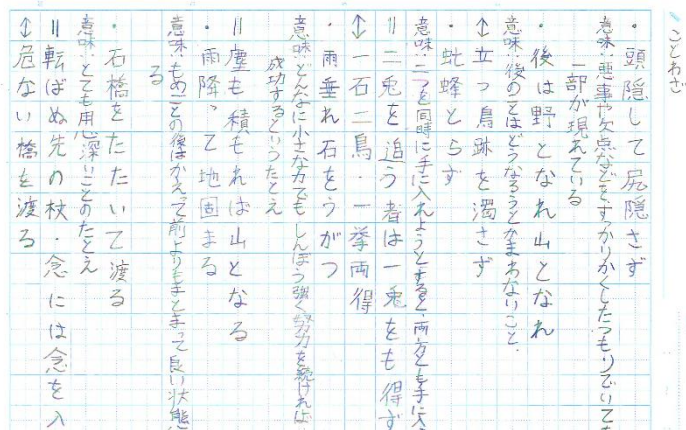 ことわざ
・頭隠して尻隠さず
意味・悪事や欠点などをすっかりかくしたつもりでいても
一部が現れている
・後は野となれ山となれ
意味・後のことはどうなろうとかまわないこと。
↕立つ鳥跡を濁さず
・虻蜂とらず
意味・二つを同時に手に入れようとすると、両方とも手に入
=二兎を追う者は一兎をも得ず
↕一石二鳥・一挙両得
・雨垂れ石をうがつ
意味・どんなに小さな力でもしんぼう強く努力を続ければ
成功するというたとえ
=塵も積もれば山となる
・雨降って地固まる
意味・もめごとの後はかえって前よりもまとまって良い状態
る
・石橋をたたいて渡る
意味・とても用心深いことのたとえ
=転ばぬ先の杖・念には念を入
↕危ない橋を渡る